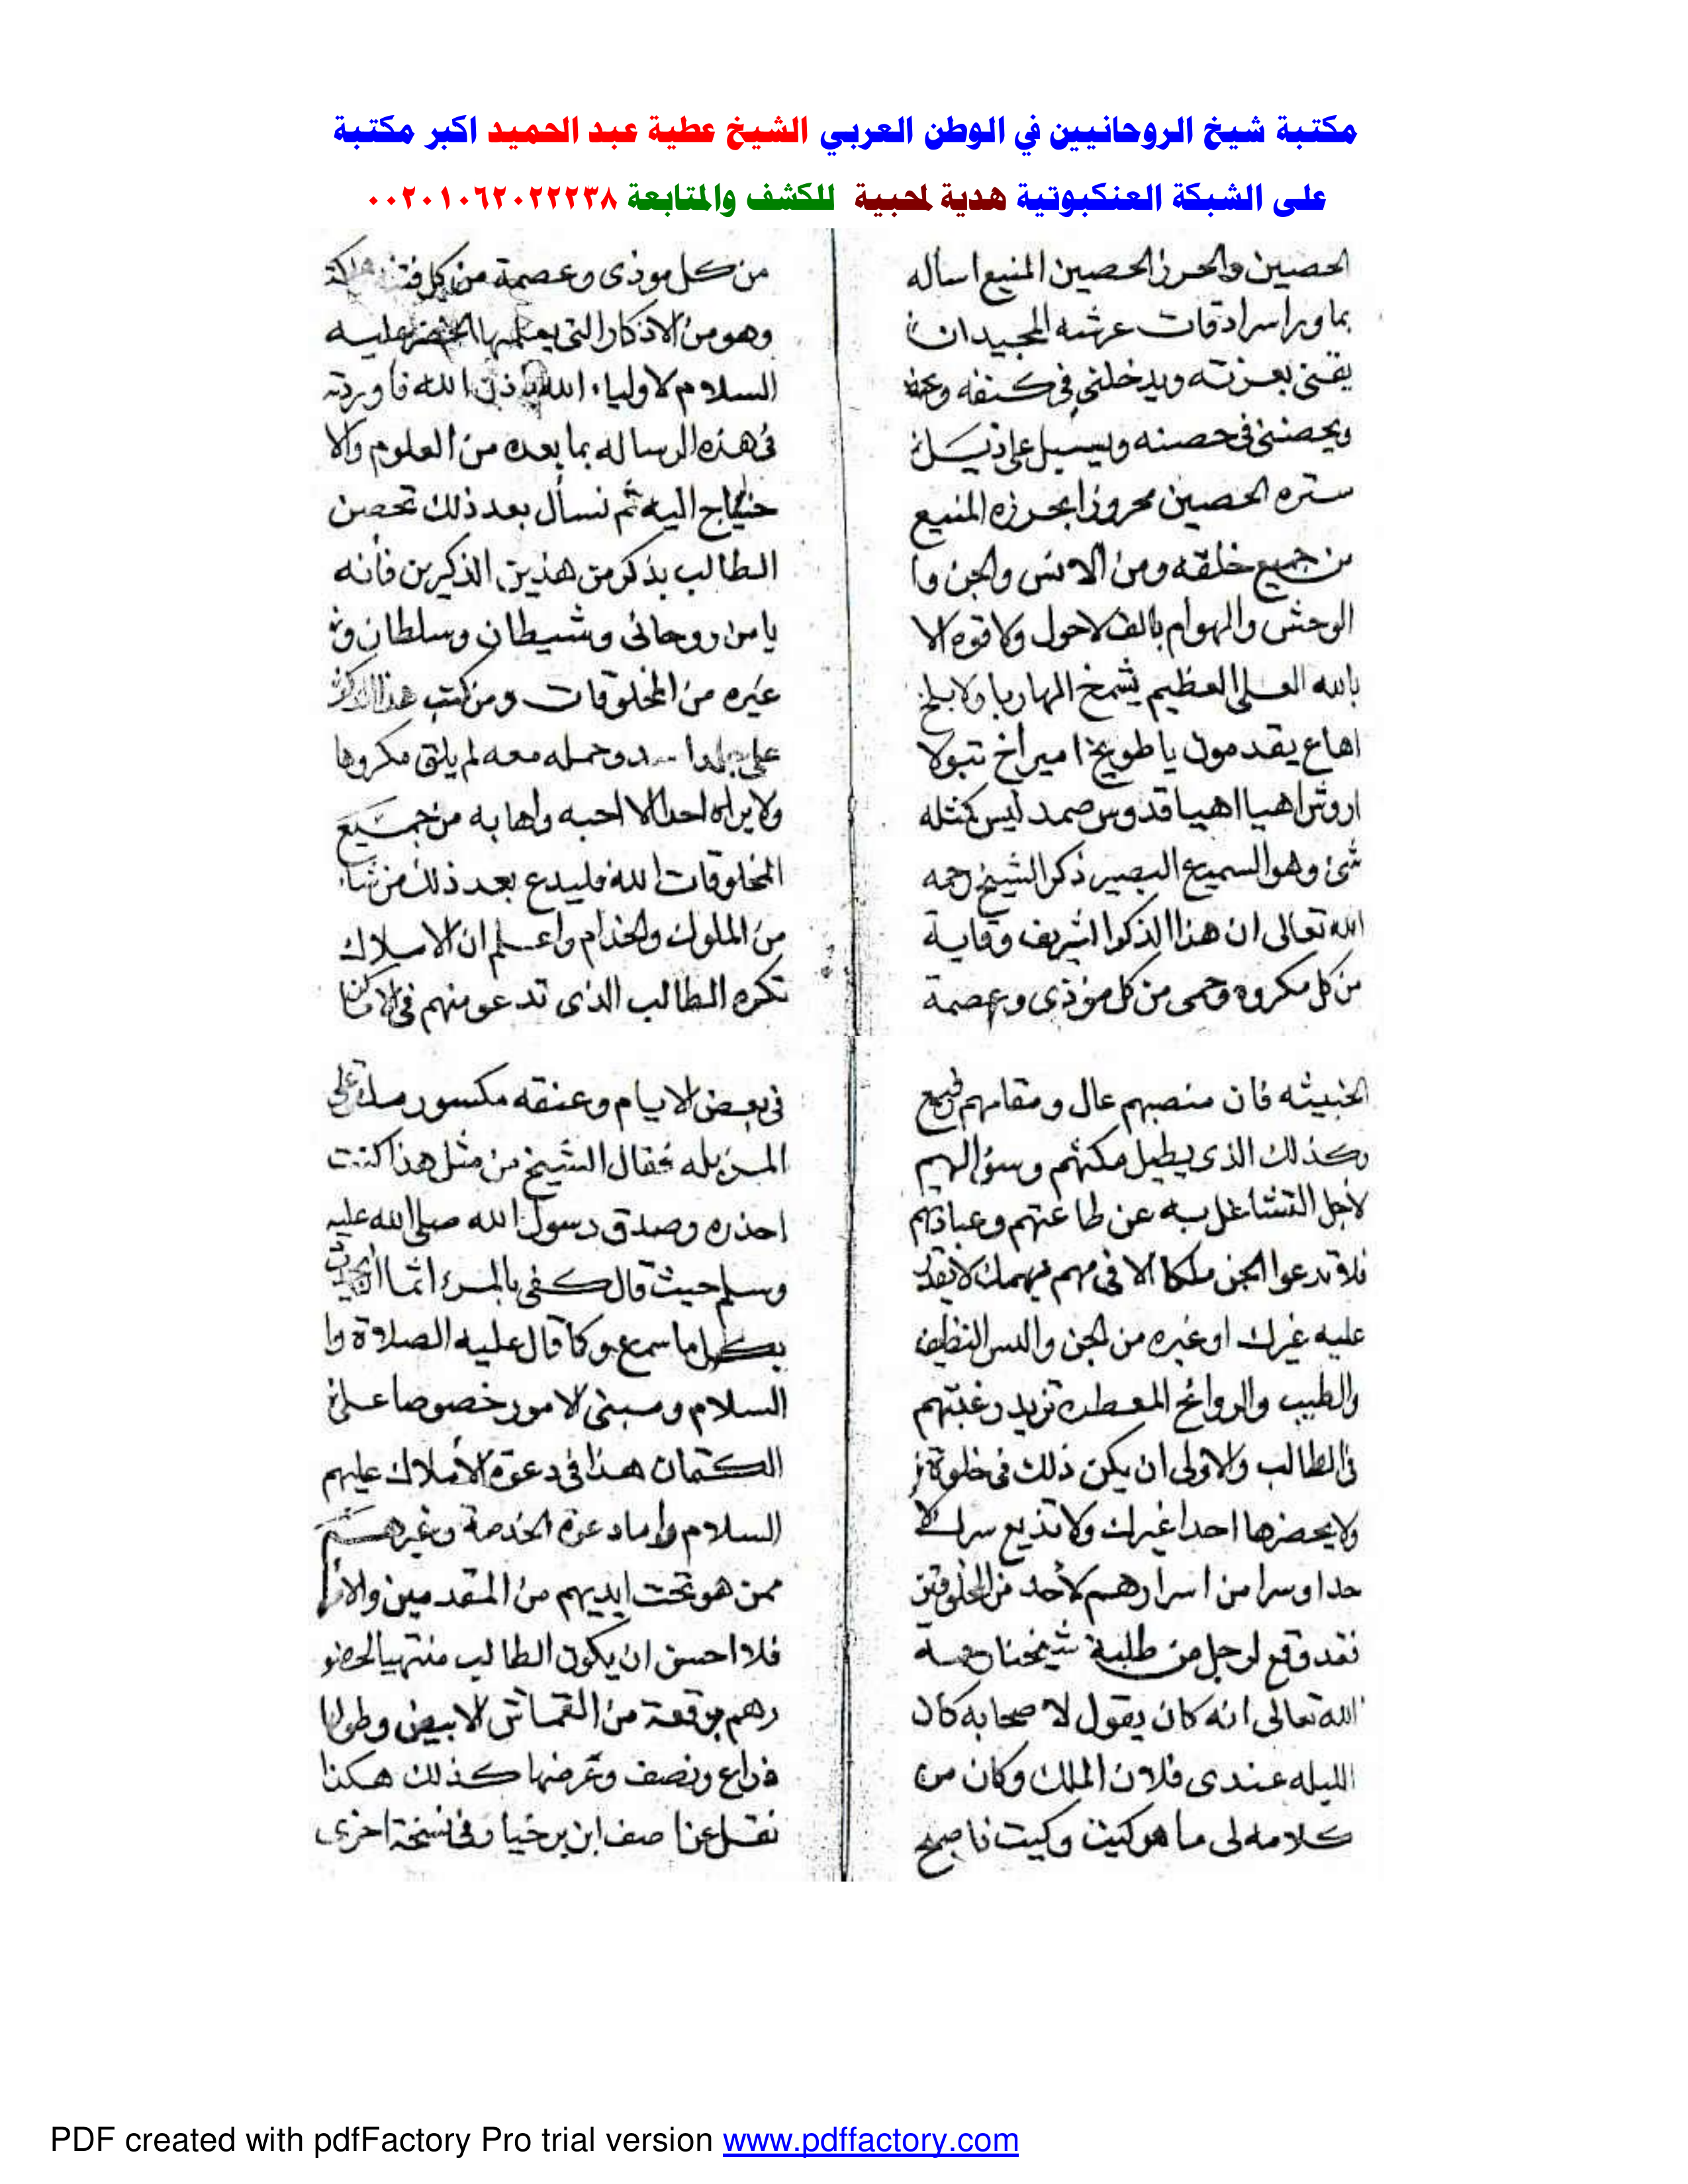 مكتبة شيخ الروحانيين في الوطن العربي الشيخ عطية عبد الحميد اكبر مكتبة
على الشبكة العنكبوتية هدية لمحبية للكشف والمتابعة ٠٠٢٠١٠٦٢٠٢٢٢٣٨
الحصين والحرز الحصين المنيع اساله
بما ورا سرادقات عرشه المجيد ان
يقينى بعزته ويدخلنى فى كنفه
ويحصننى فى حصنه ويسبل على ذيل
ستره الحصين محروزا بحرزه المنيع
من جميع خلقه ومن الانس والجن وا
الوحش والهوام بالف لاحول ولا قوه الا
بالله العلى العظيم يشمخ
اهاع يقدمون يا طويخ اميراخ تبولا
اروش اهيا اهيا قدوس صمد ليس كمثله
شئ وهو السميع البصير ذكر الشيخ رحمه
الله تعالى ان هذا الذكر الشريف وقاية
من كل مكروه وحمى من كل موذى وعصمة
من كل موذى وعصمة من كل
وهو من الاذكار التى الخضر عليه
السلام لاولياء الله باذن الله فاوردته
فى هذه الرساله بما بعده من العلوم والا
حتياج اليه ثم نسأل بعد ذلك تحصن
الطالب بذكر من هذين الذكرين فأنه
يامن روحانى وشيطان وسلطان
غيره من المخلوقات ومن كتب هذا
على وحمله معه لم يلق مكروها
ولا يراه احدا الا احبه واهابه من جميع
المخلوقات الله فليدع بعد ذلك من شاء
من الملوك والخدام واعلم ان الاملاك
تكره الطالب الذى تدعو منهم فى
الخبيثه فان منصبهم عال ومقامهم رفيع
وكذلك الذى يطيل مكثهم وسؤالهم
لاجل التشاغل به عن طاعتهم وعبادتهم
فلا تدعوا الجن ملكا الا فى مهم يهمك لا يقدر
عليه غيرك او غيره من الجن واللبس النظيف
والطيب والروائح المعطره تزيد رغبتهم
فى الطالب والاولى ان يكن ذلك فى خلوة
ولا يحضرها احدا غيرك ولا تذيع سرك لا
حد او سرا من اسرارهم لاحد من المخلوقين
فقد وقع لرجل من طلبة شيخنا رحمه
الله تعالى انه كان يقول لاصحابه كان
الليله عندى فلان الملك وكان من
كلامه لى ما هو كيت وكيت فاصبح
فى بعض الايام وعنقه مكسور على
المزبله فقال الشيخ من مثل هذا كنت
احذره وصدق رسول الله صلى الله عليه
وسلم حيث قال كفى بالمرء اثما
بكل ما سمع وكا قال عليه الصلاة وا
السلام ومبنى الامور خصوصا على
الكتمان هذا فى دعوة الاملاك عليهم
السلام واما دعوة الخدمة وغيرهم
ممن هو تحت ايديهم من المقدمين
فلا احسن ان يكون الطالب منتهيا لحضو
رهم برقعة من القماش الابيض وطولها
ذراع ونصف وعرضها كذلك هكذا
نقل عن اصف ابن برخيا وفى نسخة اخرى
PDF created with pdfFactory Pro trial version www.pdffactory.com